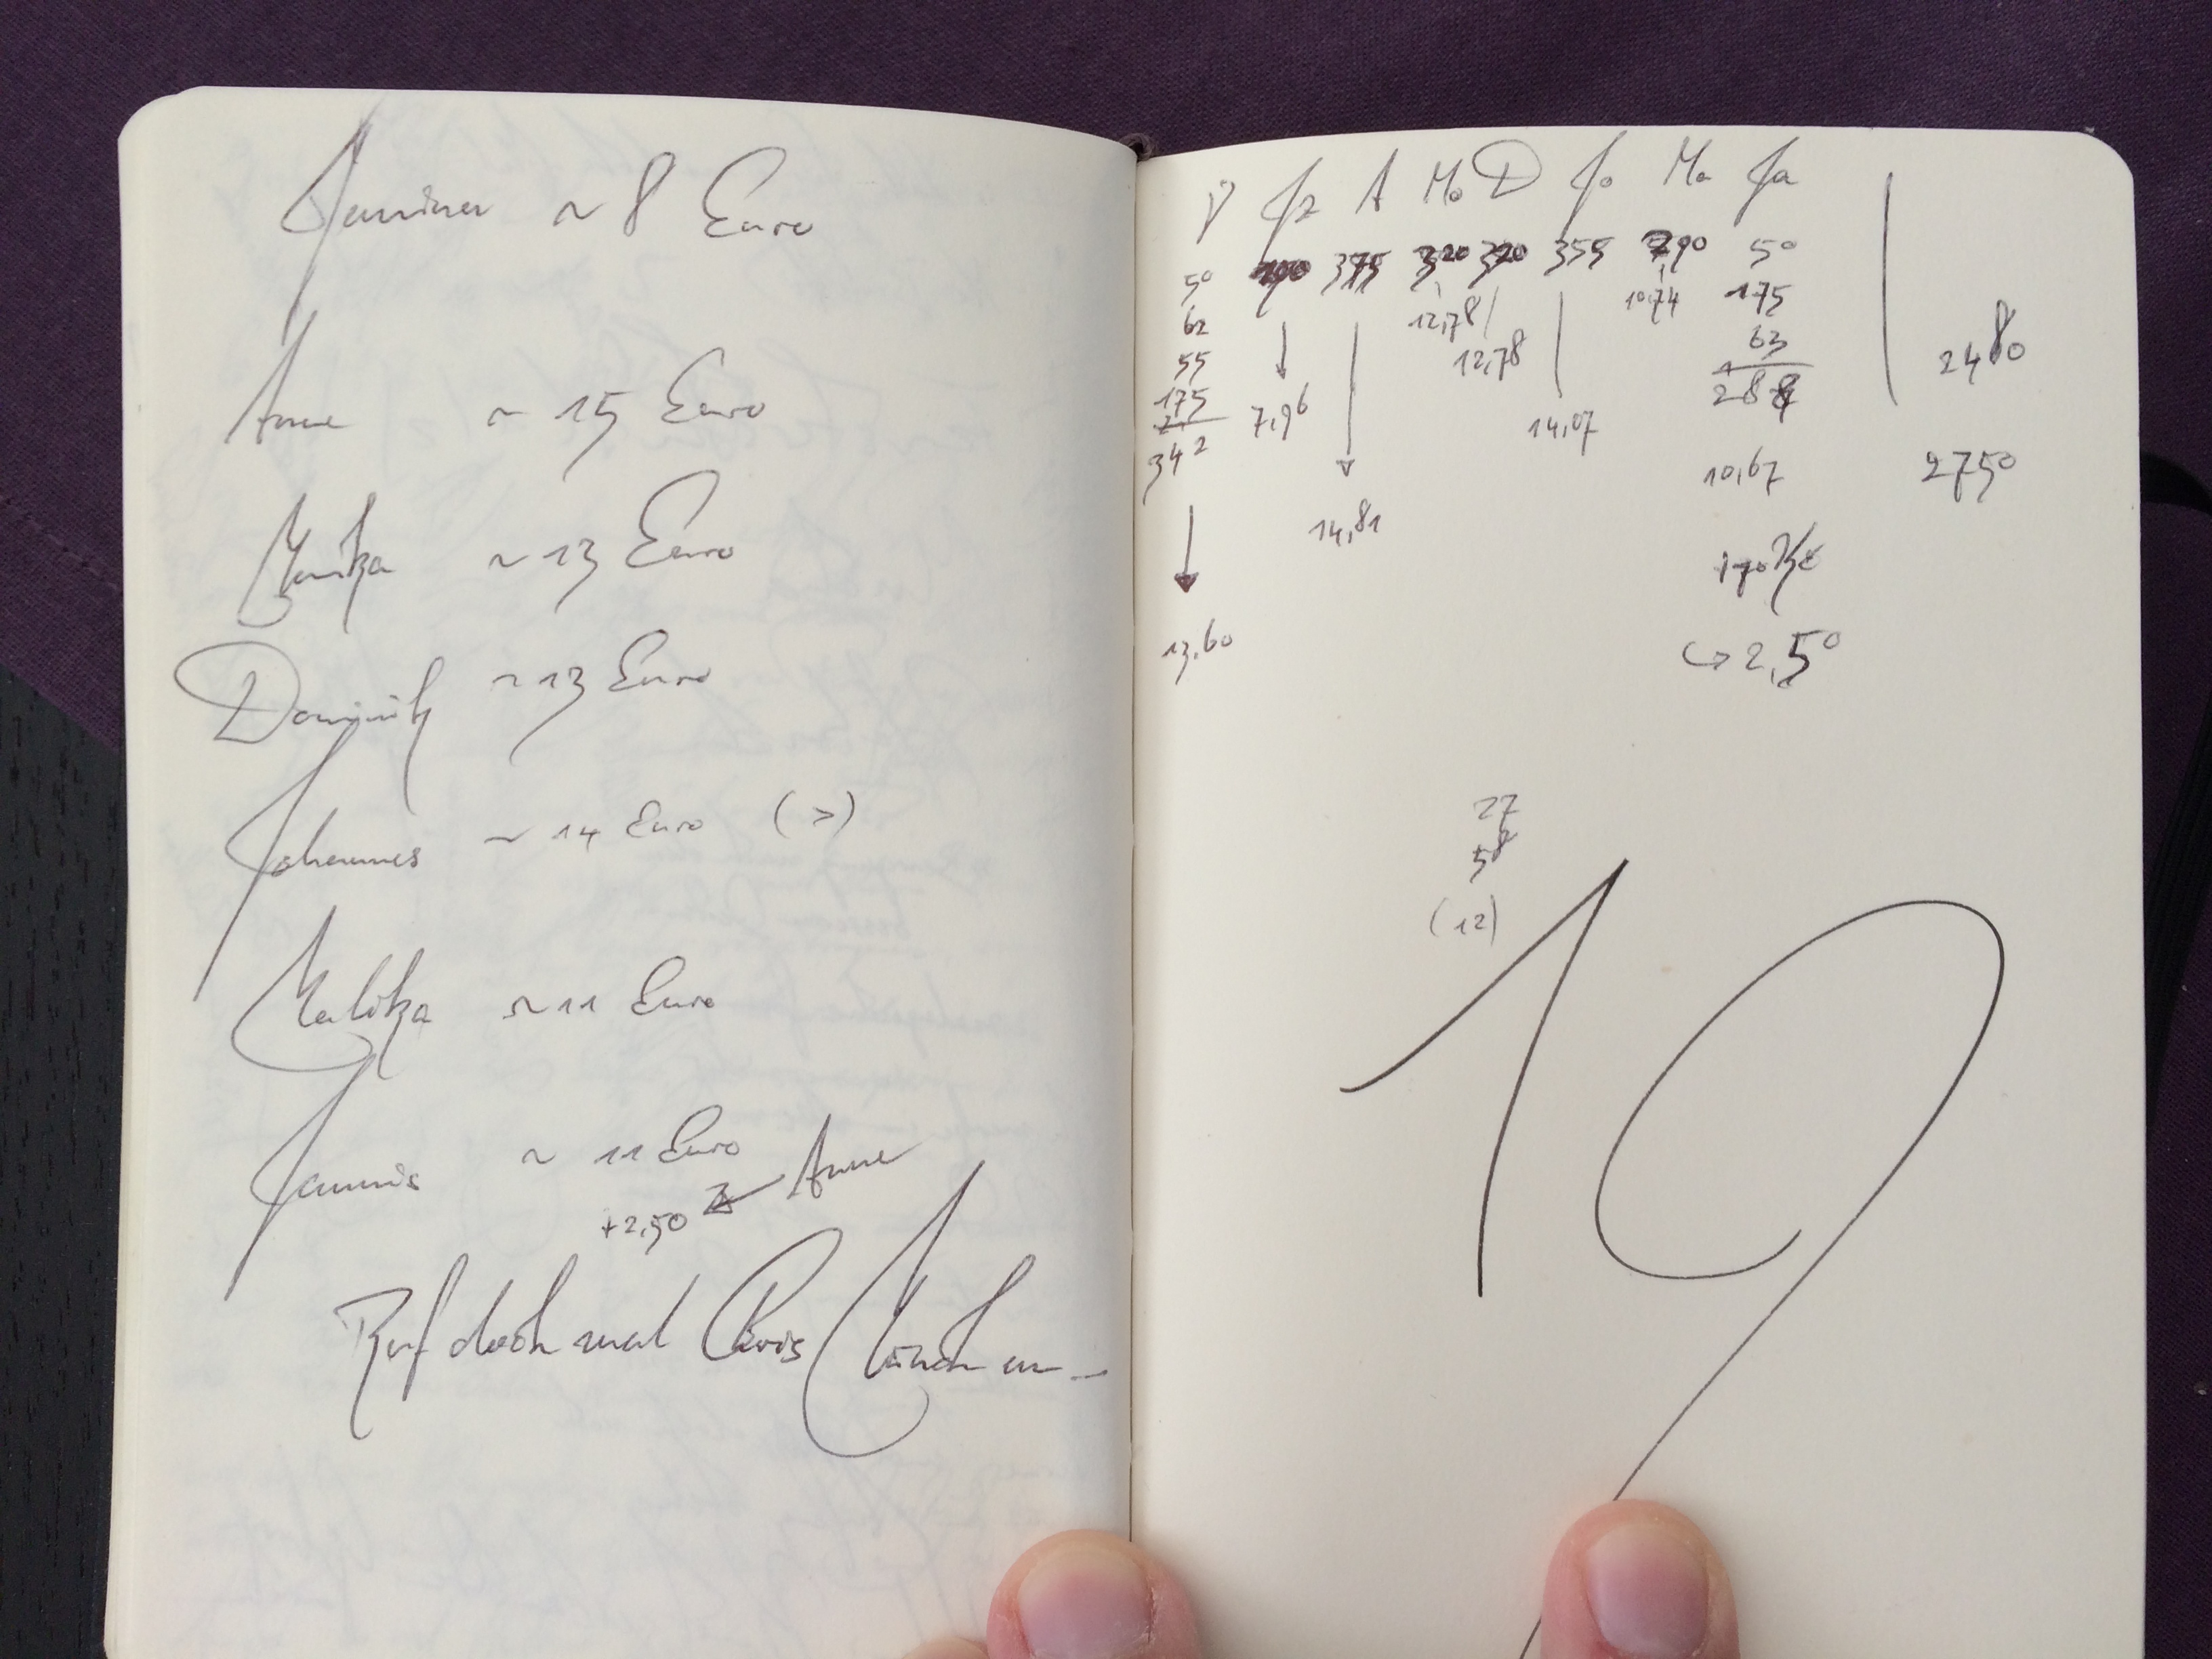 Janina ~ 8 Euro
Anne ~ 15 Euro
Monika ~ 13 Euro
Dominik ~ 13 Euro
Johannes ~ 14 Euro (>)
Malika ~ 11 Euro
Jannis ~ 11 Euro
+2,50 Anne
Ruf doch mal
A Mo D Jo Ma Ja
50 375 320 320 355 290 50
62 12,78 10,74 175
55 12,78 63
175 7,96 14,07 288 2480
342 10,67 2750
14,81
13,60 → 2,50
27
58
(12)
19